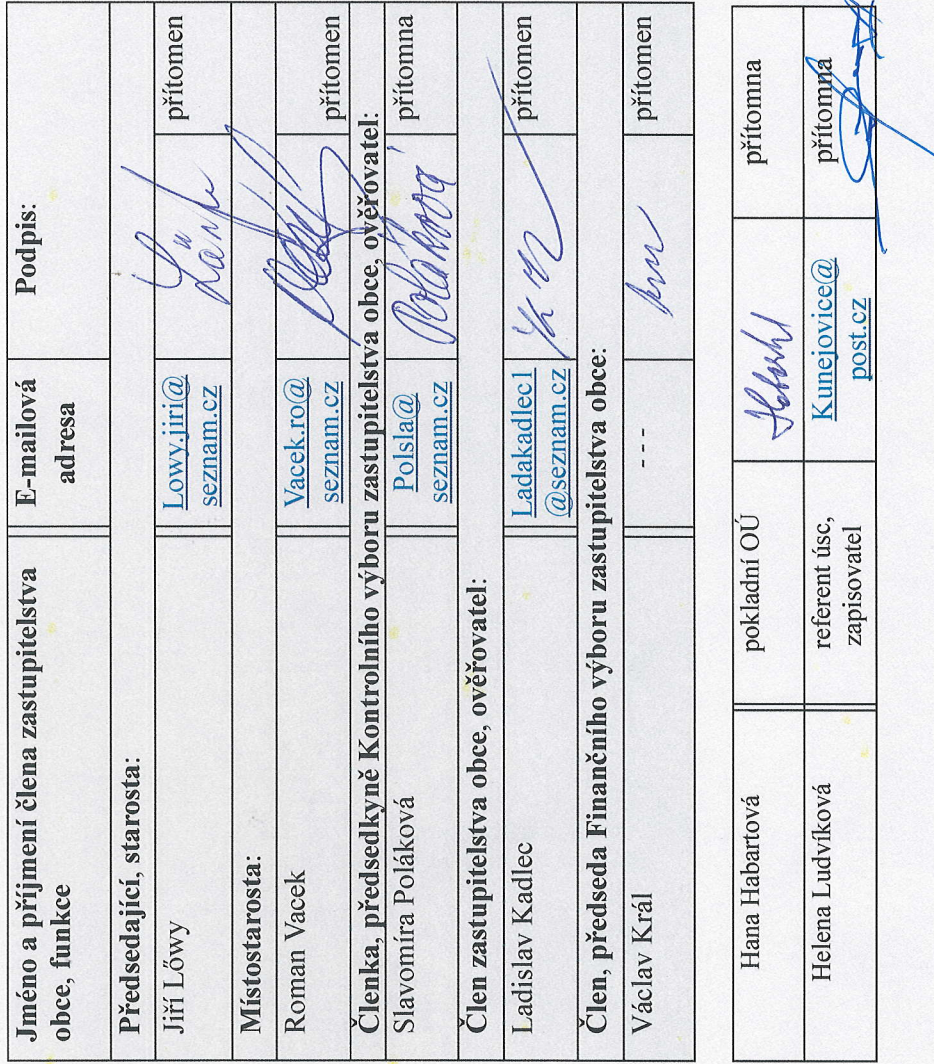 Jméno a příjmení člena zastupitelstva
obce, funkce
E-mailová
adresa
Podpis:
Předsedající, starosta:
Jiří Lőwy
Lowy.jiri@
seznam.cz
přítomen
Místostarosta:
Roman Vacek
Vacek.ro@
seznam.cz
přítomen
Členka, předsedkyně Kontrolního výboru zastupitelstva obce, ověřovatel:
Slavomíra Poláková
Polsla@
seznam.cz
Poláková
přítomna
Člen zastupitelstva obce, ověřovatel:
Ladislav Kadlec
Ladakadlec1
@seznam.cz
přítomen
Člen, předseda Finančního výboru zastupitelstva obce:
Václav Král
- - -
přítomen
Hana Habartová
pokladní OÚ
přítomna
Helena Ludvíková
referent úsc,
zapisovatel
Kunejovice@
post.cz
přítomna